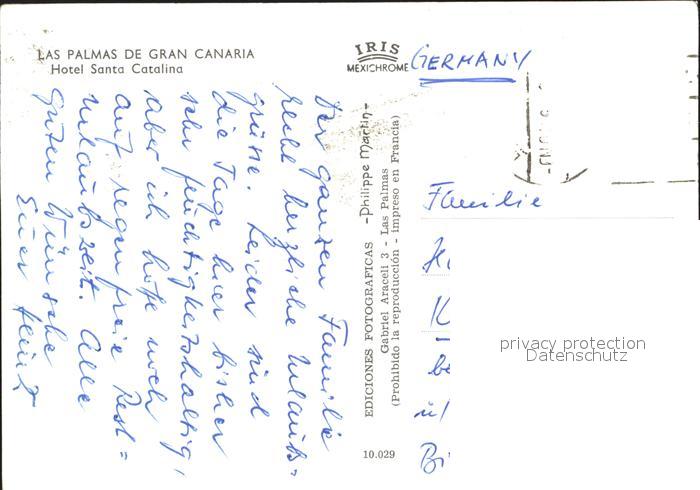 LAS PALMAS DE GRAN CANARIA
Hotel Santa Catalina
Der ganzen Familie
recht herzliche Urlaubs=
grüsse. Leider sind
die Tage hier bisher
sehr feuchtigkeitshaltig,
aber ich hoffe noch
auf regenfreie Rest=
urlaubszeit. Alle
guten Wünsche
Euer Heinz
IRIS
MEXICHROME
EDICIONES FOTOGRAFICAS -Philippe Martin-
Gabriel Araceli 3 - Las Palmas
(Prohibido la reproducción - impreso en Francia)
10.029
GERMANY
Familie
K
be
Bri
privacy protection
Datenschutz